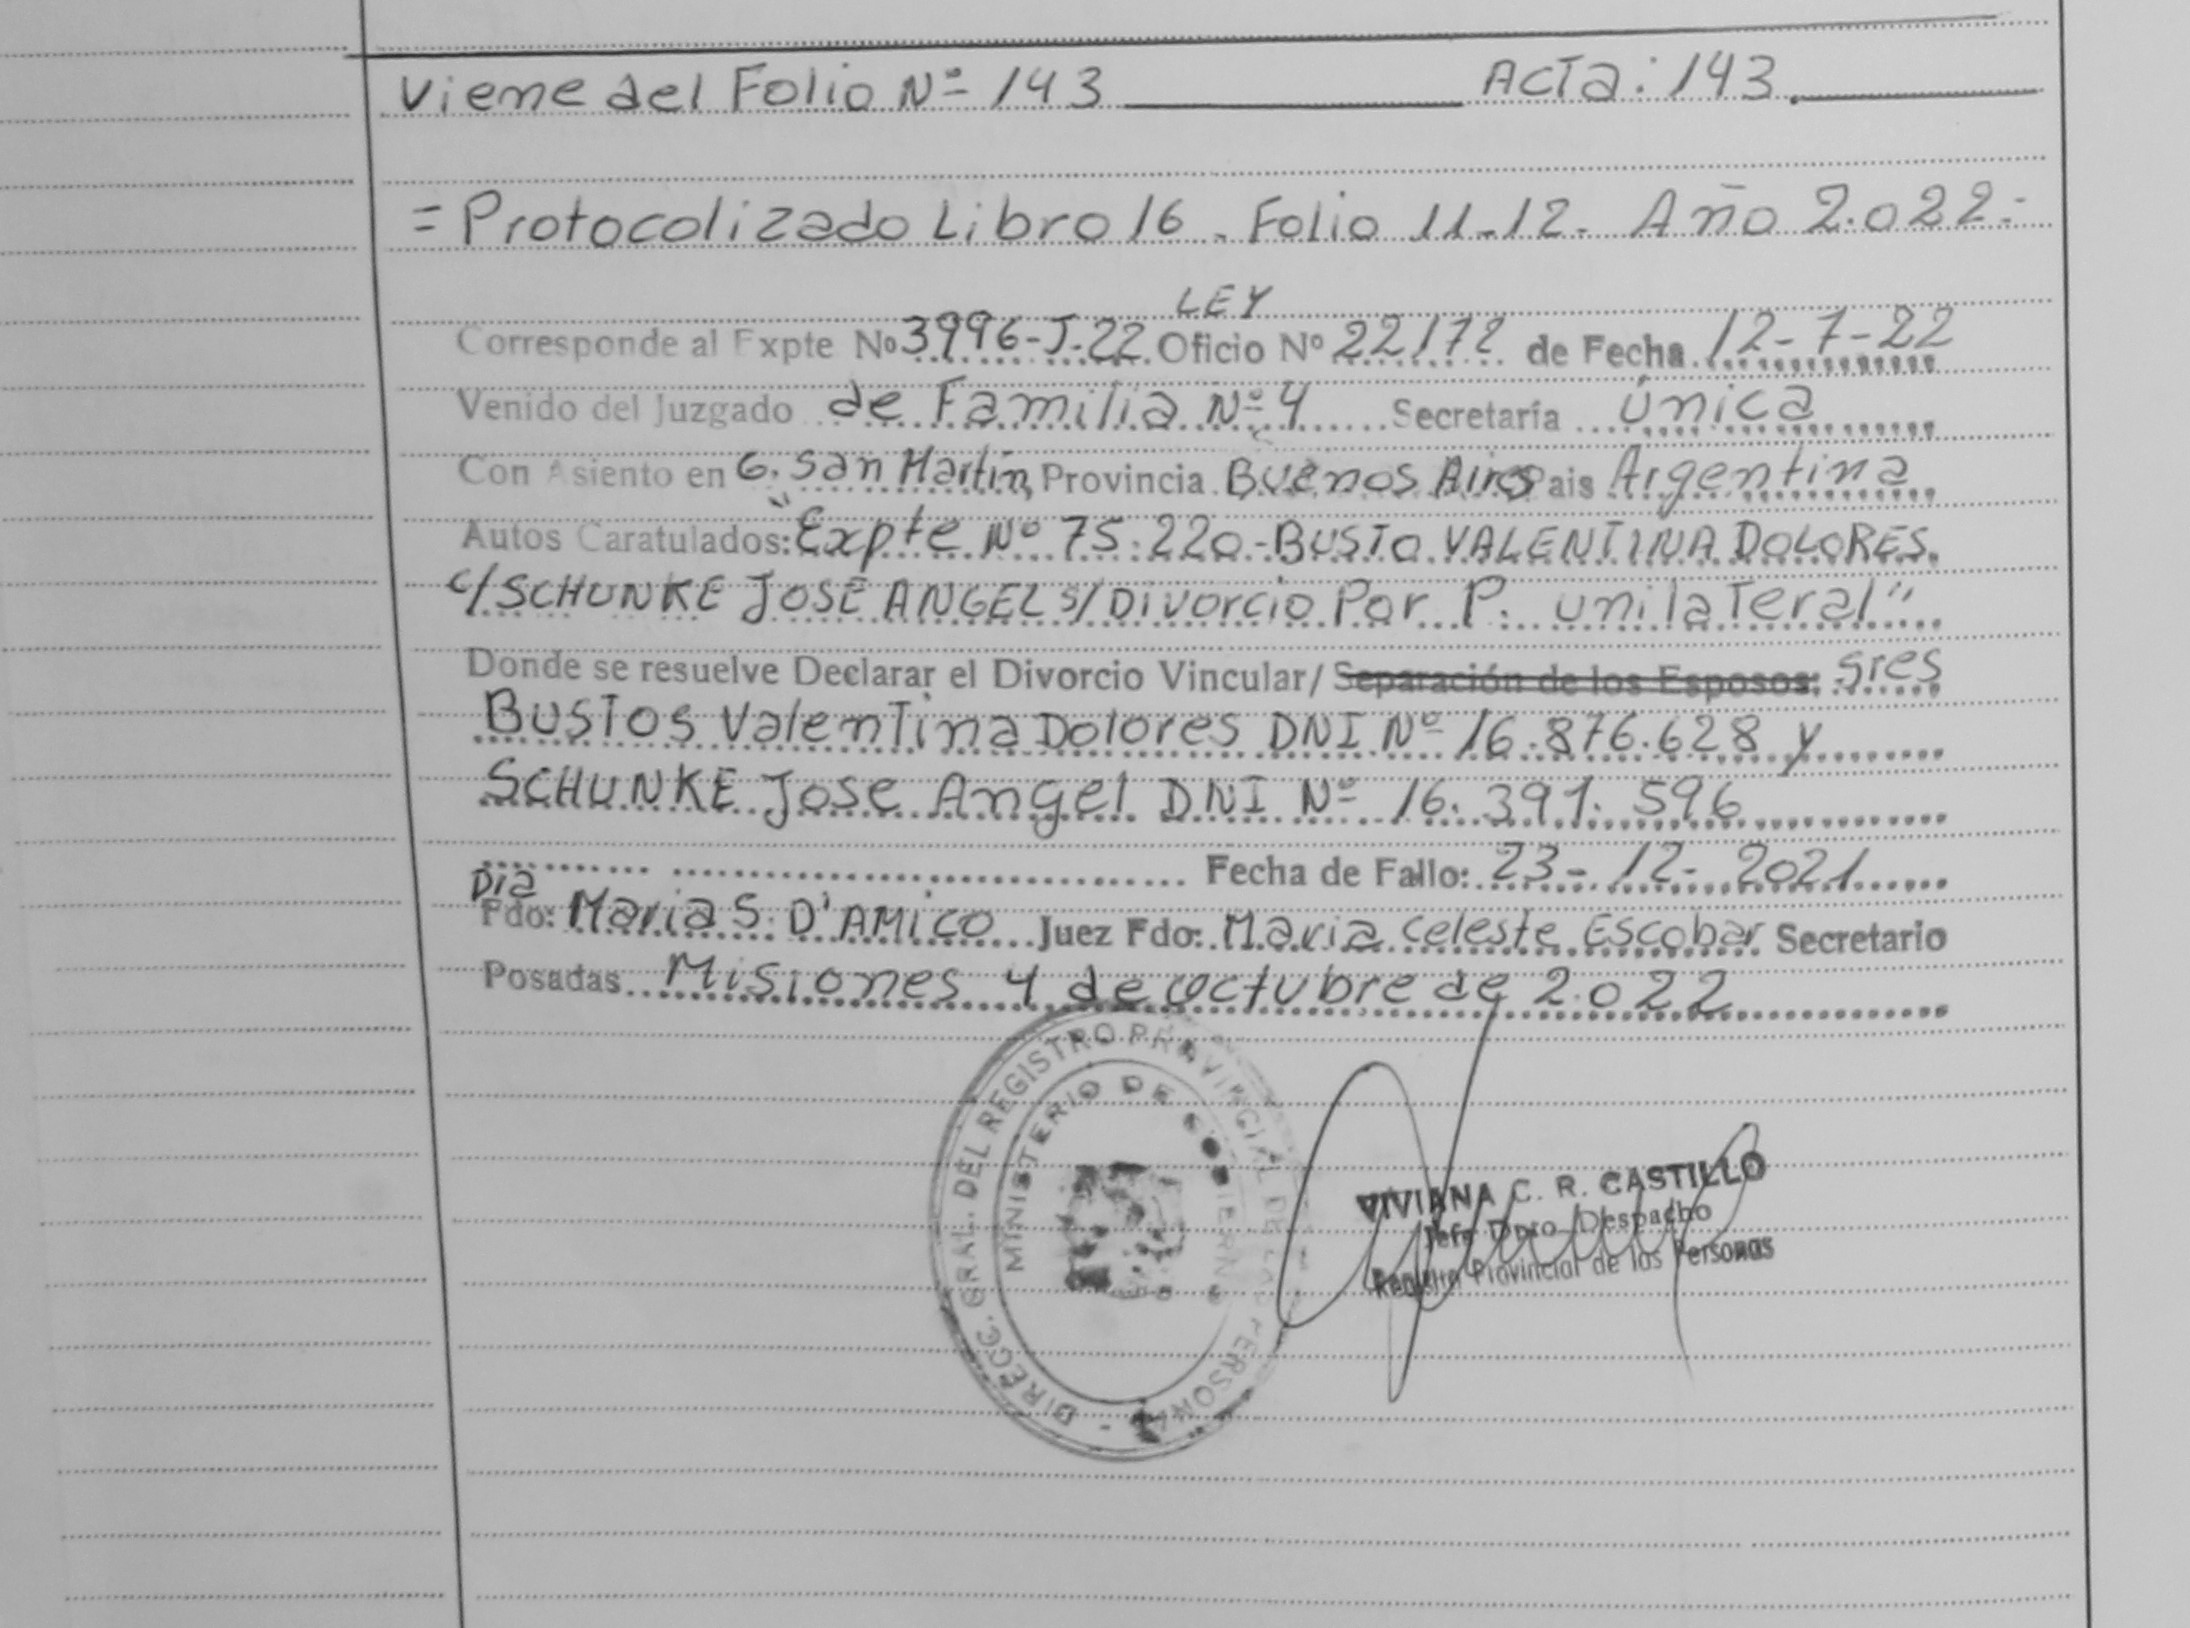 Viene del Folio Nº 143 Acta: 143.
= Protocolizado Libro 16 - Folio 11-12- Año 2.022=
LEY
Corresponde al Expte No 3996-J-22 Oficio Nº 22172 de Fecha 12-7-22
Venido del Juzgado de Familia Nº 4 Secretaría única
Con Asiento en G. San Martin, Provincia Buenos Aires Pais Argentina
Autos Caratulados: "Expte Nº 75.220-BUSTO VALENTINA DOLORES
c/ SCHUNKE JOSE ANGEL s/ Divorcio Por P. unilateral"
Donde se resuelve Declarar el Divorcio Vincular/ Separación de los Esposos: sres
BUSTOS Valentina Dolores DNI Nº 16.876.628 y
SCHUNKE Jose Angel DNI Nº 16.391.596
Fecha de Fallo: 23-12-2021
Dra
Fdo: Maria S. D'AMICO Juez Fdo: Maria Celeste Escobar Secretario
Posadas Misiones 4 de octubre de 2.022
DIRECC. GRAL. DEL REGISTRO PROVINCIAL DE LAS PERSONAS -
MINISTERIO DE GOBIERNO
VIVIANA C. R. CASTILLO
Jefe Dpto Despacho
Registro Provincial de las Personas